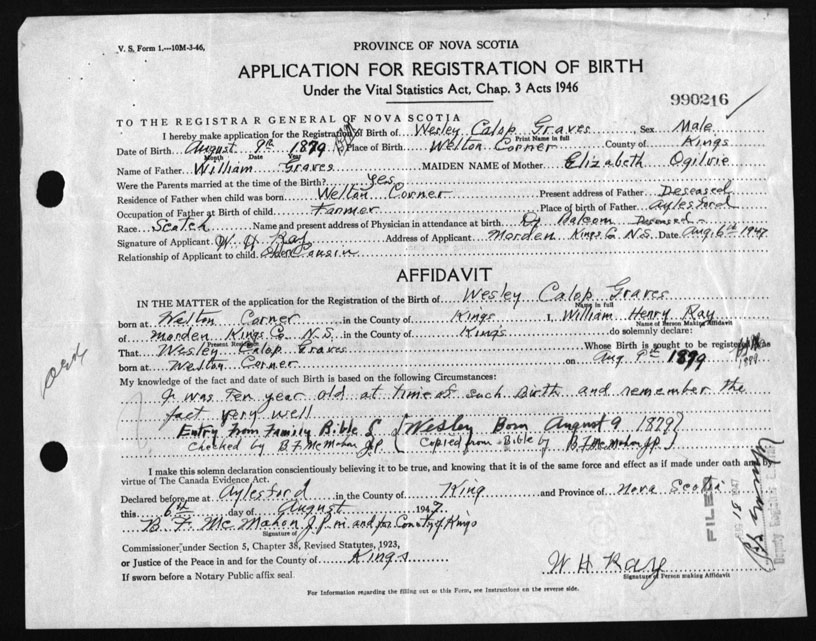 V. S. Form 1.—10M-3-46.
PROVINCE OF NOVA SCOTIA
APPLICATION FOR REGISTRATION OF BIRTH
Under the Vital Statistics Act, Chap. 3 Acts 1946
990216
TO THE REGISTRAR GENERAL OF NOVA SCOTIA
I hereby make application for the Registration of Birth of Wesley Calop Graves Sex Male
Print Name in full
Date of Birth August 9th 1879 Place of Birth Welton Corner County of Kings
Month Date Year
Name of Father William Graves MAIDEN NAME of Mother Elizabeth Ogilvie
Were the Parents married at the time of the Birth? yes
Residence of Father when child was born Welton Corner Present address of Father Deseased
Occupation of Father at Birth of child Farmer Place of birth of Father Aylesford
Race Scotch Name and present address of Physician in attendance at birth Dr Deseased
Signature of Applicant W. H. Ray Address of Applicant Morden Kings Co N.S. Date Aug. 6th 1947
Relationship of Applicant to child Cousin
AFFIDAVIT
IN THE MATTER of the application for the Registration of the Birth of Wesley Calop Graves
Name in full
born at Welton Corner in the County of Kings I, William Henry Ray
Name of Person Making Affidavit
of Morden Kings Co N.S. in the County of Kings do solemnly declare:
Present Residence
That Wesley Calop Graves Whose Birth is sought to be registered was
born at Welton Corner on Aug 9th 1879
My knowledge of the fact and date of such Birth is based on the following Circumstances:
I was Ten year old at time of such Birth and remember the
fact very well
Entry From Family Bible { Wesley Born August 9 1879 }
Checked by B F McMahon J.P. ( Copied from Bible by B F McMahon J.P. )
I make this solemn declaration conscientiously believing it to be true, and knowing that it is of the same force and effect as if made under oath and by
virtue of The Canada Evidence Act.
Declared before me at Aylesford in the County of King and Province of Nova Scotia
this 6th day of August 1947.
B F McMahon J.P. in and for County of Kings
Signature of
Commissioner under Section 5, Chapter 38, Revised Statutes, 1923,
or Justice of the Peace in and for the County of Kings
If sworn before a Notary Public affix seal.
W H Ray
Signature of Person making Affidavit
For Information regarding the filling out of this Form, see Instructions on the reverse side.
FILED
18 1947